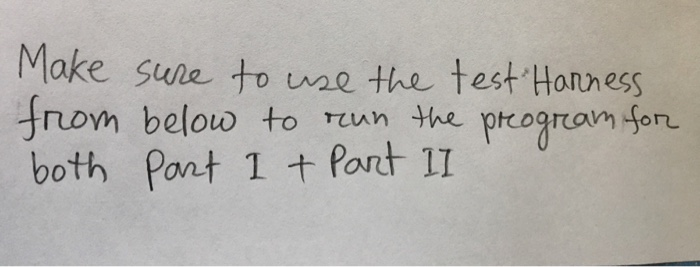 Make sure to use the test Harness
from below to run the program for
both Part I + Part II